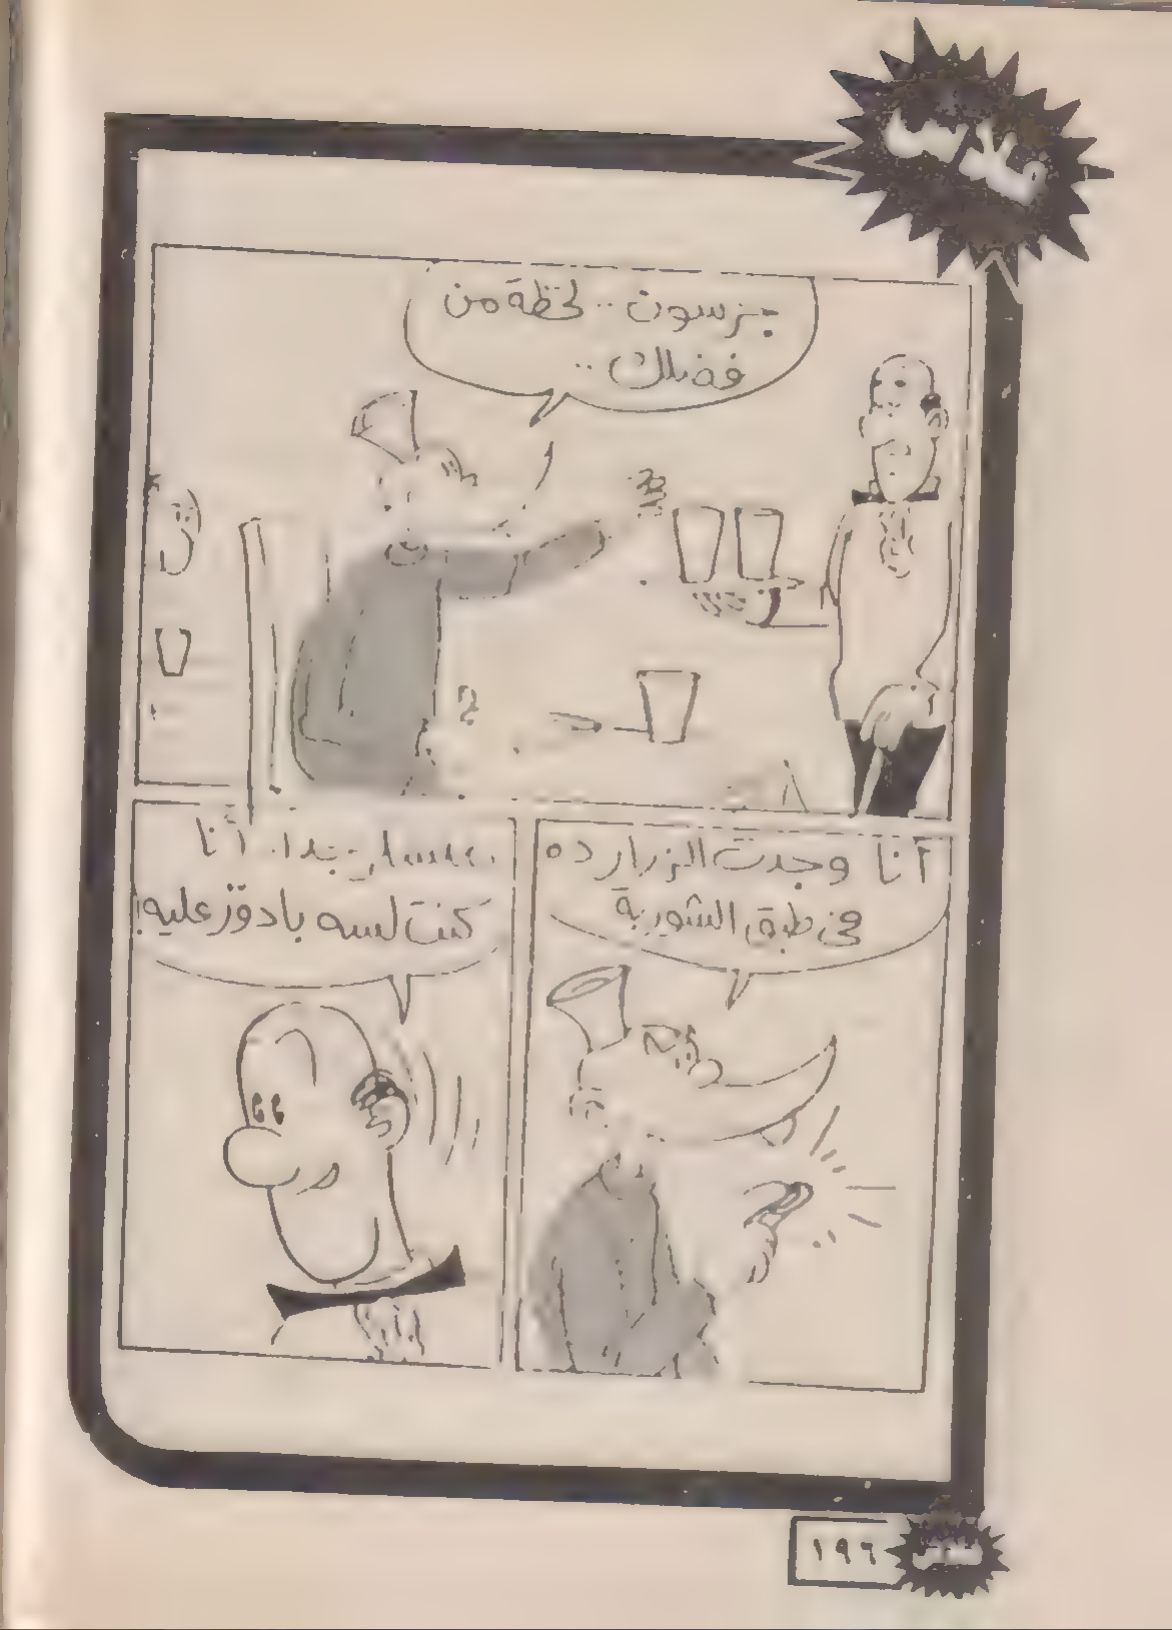 فلاش
جرسون .. لحظة من
فضلك ..
أنا وجدت الزرار ده
فى طبق الشوربة
جدا. أنا
كنت لسه بادوّر عليه!
١٩٦
فلاش